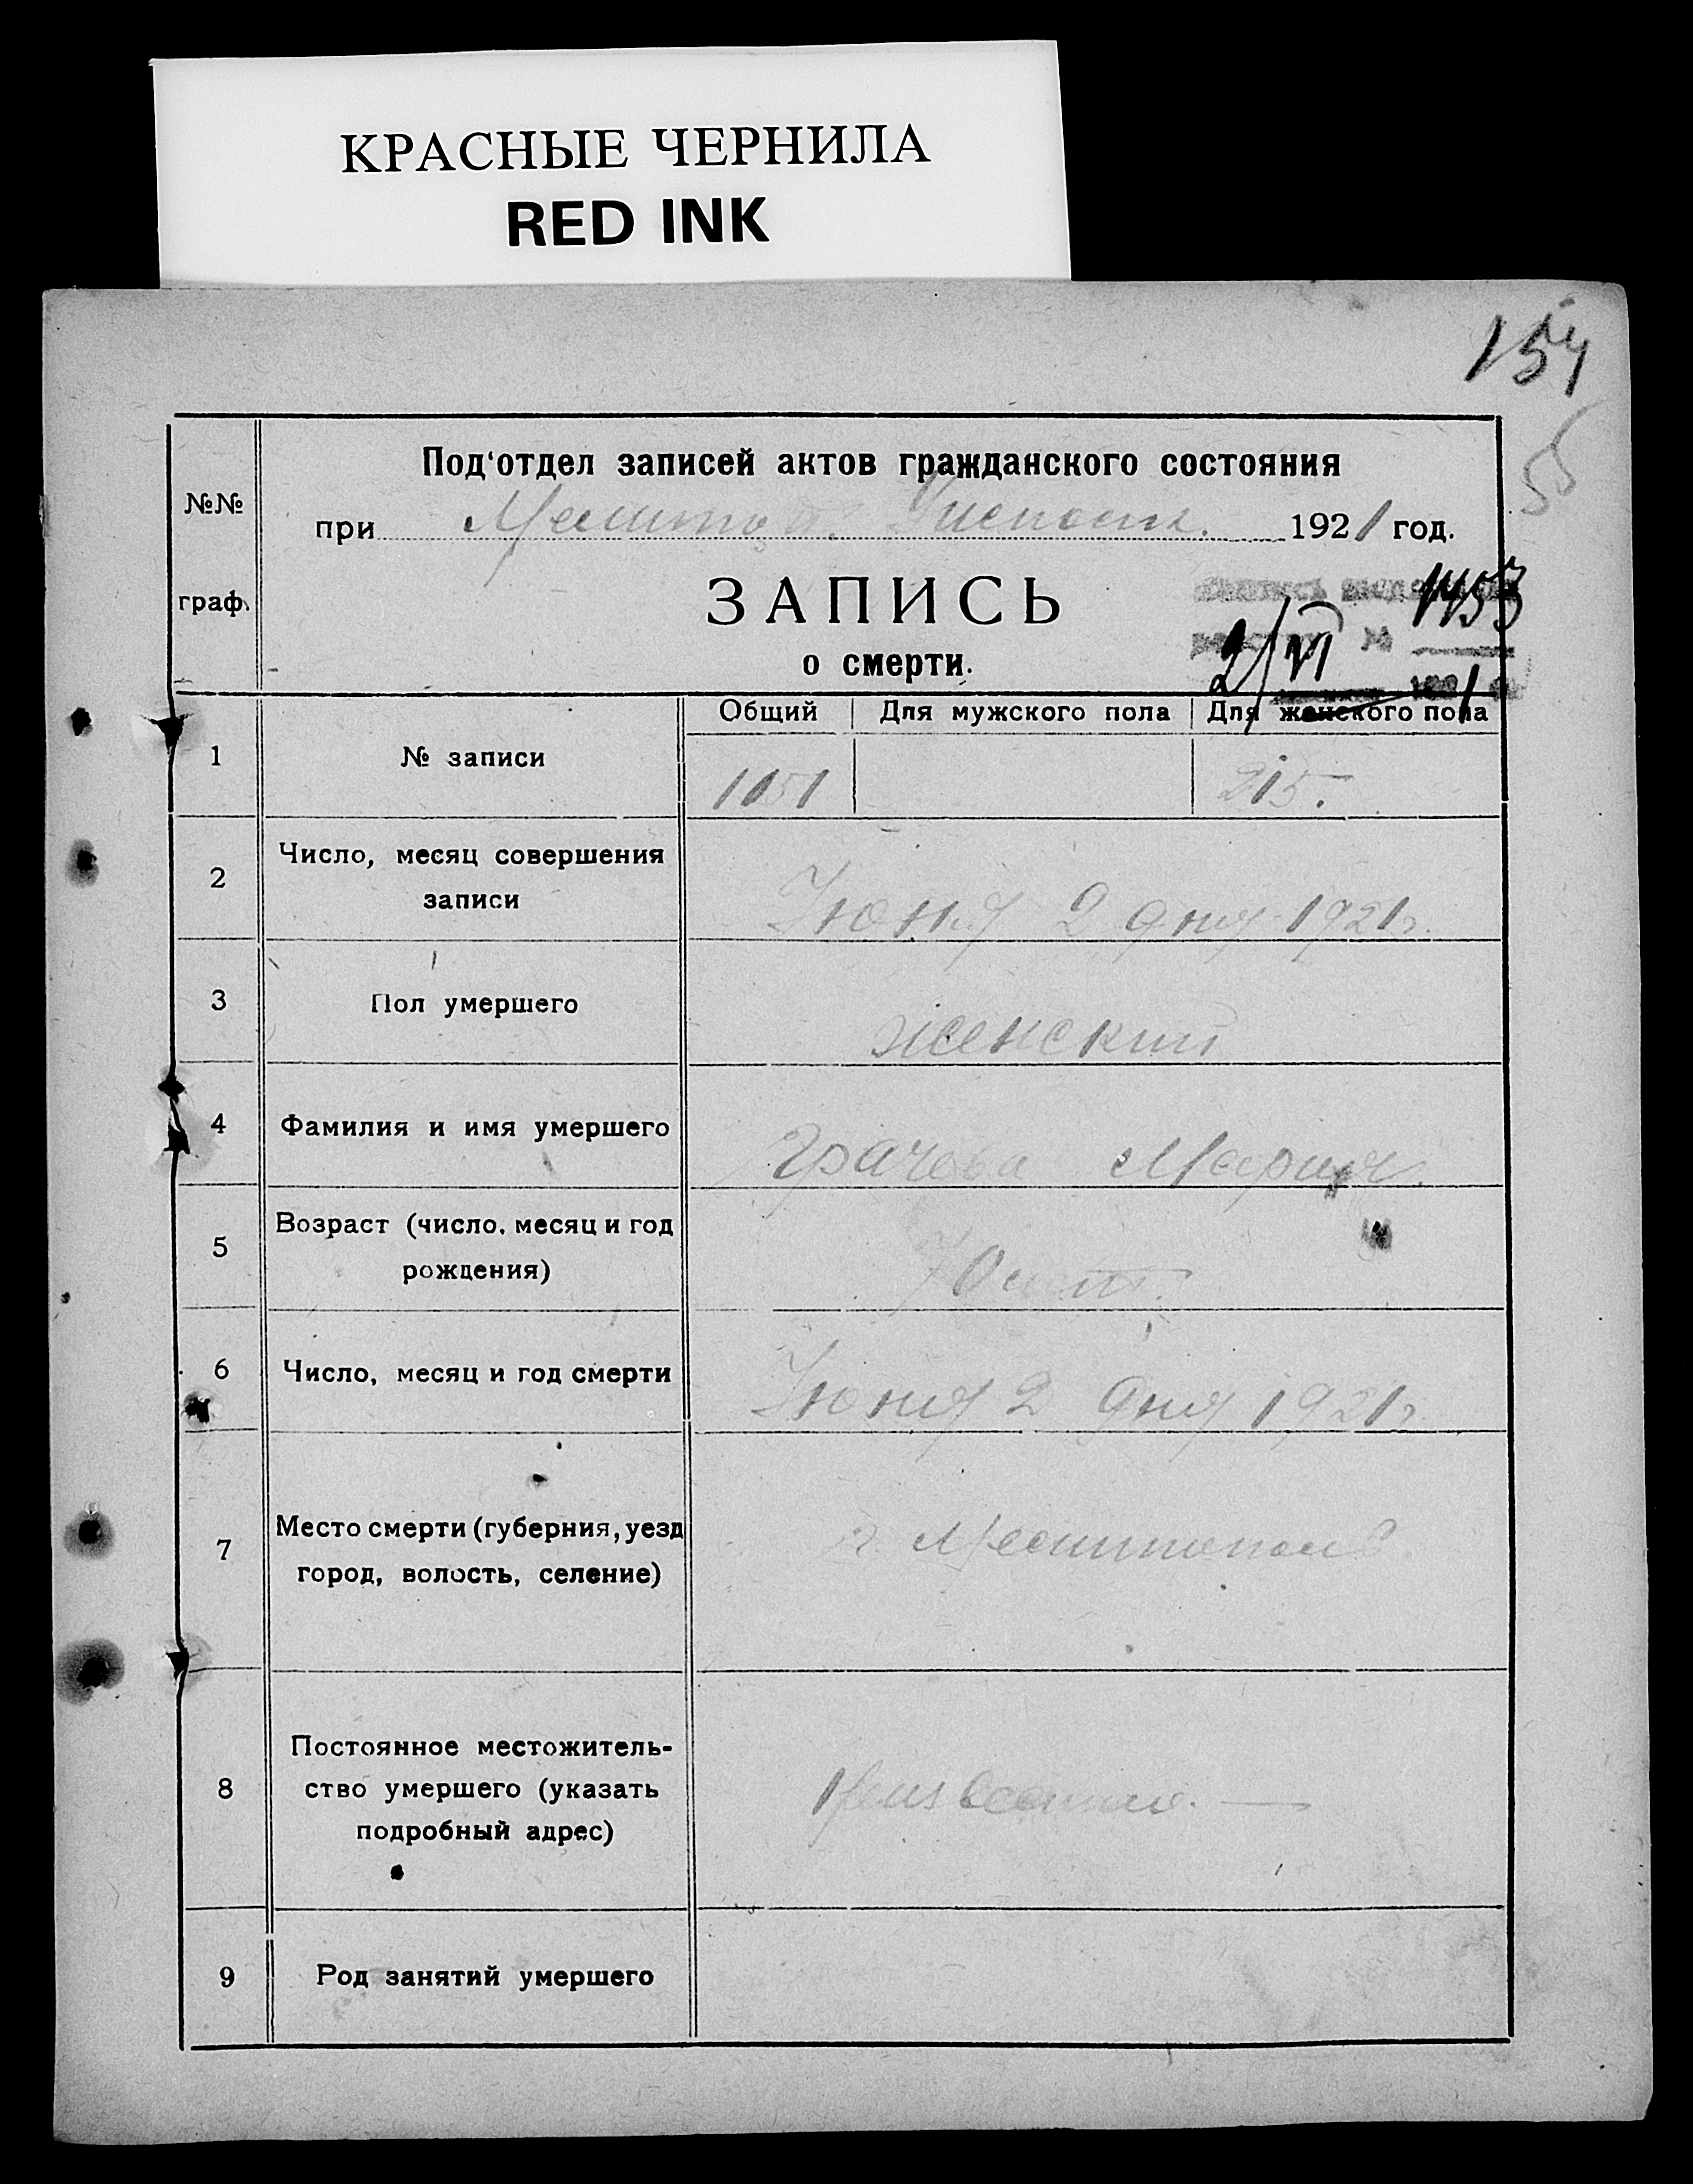 КРАСНЫЕ ЧЕРНИЛА
RED INK
154
55
Под‘отдел записей актов гражданского состояния
№№
при Мелитоп. Исполк. 1921 год.
граф.
ЗАПИСЬ
1453
о смерти.
2/VI
Общий Для мужского пола Для женского пола
1 № записи 1151 215.
2 Число, месяц совершения
записи
Июня 2 дня 1921 г.
3 Пол умершего женский
4 Фамилия и имя умершего Грачева Мария.
5 Возраст (число, месяц и год
рождения)
70 лет.
6 Число, месяц и год смерти Июня 2 дня 1921 г.
7 Место смерти (губерния, уезд
город, волость, селение)
г. Мелитополь
8 Постоянное местожитель-
ство умершего (указать
подробный адрес)
9 Род занятий умершего